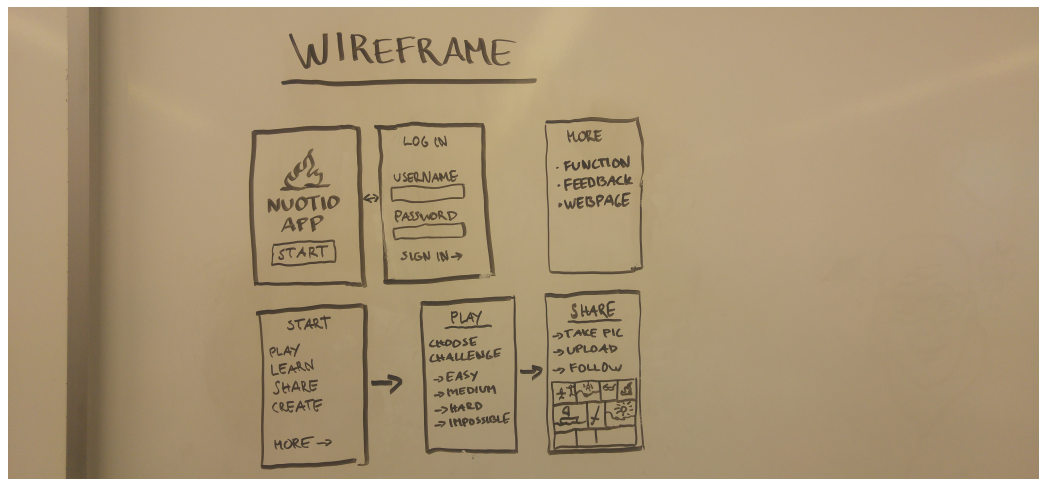 WIREFRAME
NUOTIO
APP
START
LOG IN
USERNAME
PASSWORD
SIGN IN →
MORE
· FUNCTION
· FEEDBACK
· WEBPAGE
START
PLAY
LEARN
SHARE
CREATE
MORE →
PLAY
CHOOSE
CHALLENGE
→ EASY
→ MEDIUM
→ HARD
→ IMPOSSIBLE
SHARE
→ TAKE PIC
→ UPLOAD
→ FOLLOW